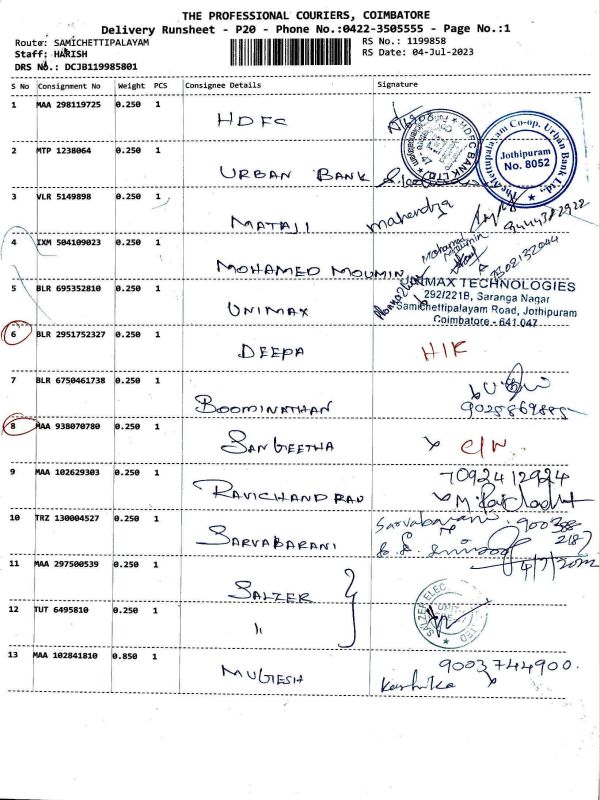 THE PROFESSIONAL COURIERS, COIMBATORE
Delivery Runsheet - P20 - Phone No.:0422-3505555 - Page No.:1
Route: SAMICHETTIPALAYAM
Staff: HARISH
DRS No.: DCJB119985801
RS No.: 1199858
RS Date: 04-Jul-2023
S No Consignment No Weight PCS Consignee Details Signature
1 MAA 298119725 0.250 1 HDFC
HDFC BANK LTD
2 MTP 1238064 0.250 1 URBAN BANK
The Mettupalayam Co-op. Urban Bank Ltd.,
Jothipuram
No. 8052
3 VLR 5149898 0.250 1 MATAJI mahendra
9444382922
4 IXM 504109023 0.250 1 MOHAMED MOUMIN Mohamed Moumin
7502132044
5 BLR 695352810 0.250 1 UNIMAX
UNMAX TECHNOLOGIES
292/221B, Saranga Nagar
Samichettipalayam Road, Jothipuram
Coimbatore - 641 047
6 BLR 2951752327 0.250 1 DEEPA HIK
7 BLR 6750461738 0.250 1 BOOMINATHAN
9025869885
8 MAA 938070780 0.250 1 SANGEETHA C/N
9 MAA 102629303 0.250 1 RAVICHANDRAN
7092412924
10 TRZ 130004527 0.250 1 SARVABARANI Sarvabarani
11 MAA 297500539 0.250 1 SALZER
SALZER ELEC
12 TUT 6495810 0.250 1 "
13 MAA 102841810 0.850 1 MUGESH
9003744900.
Karthika